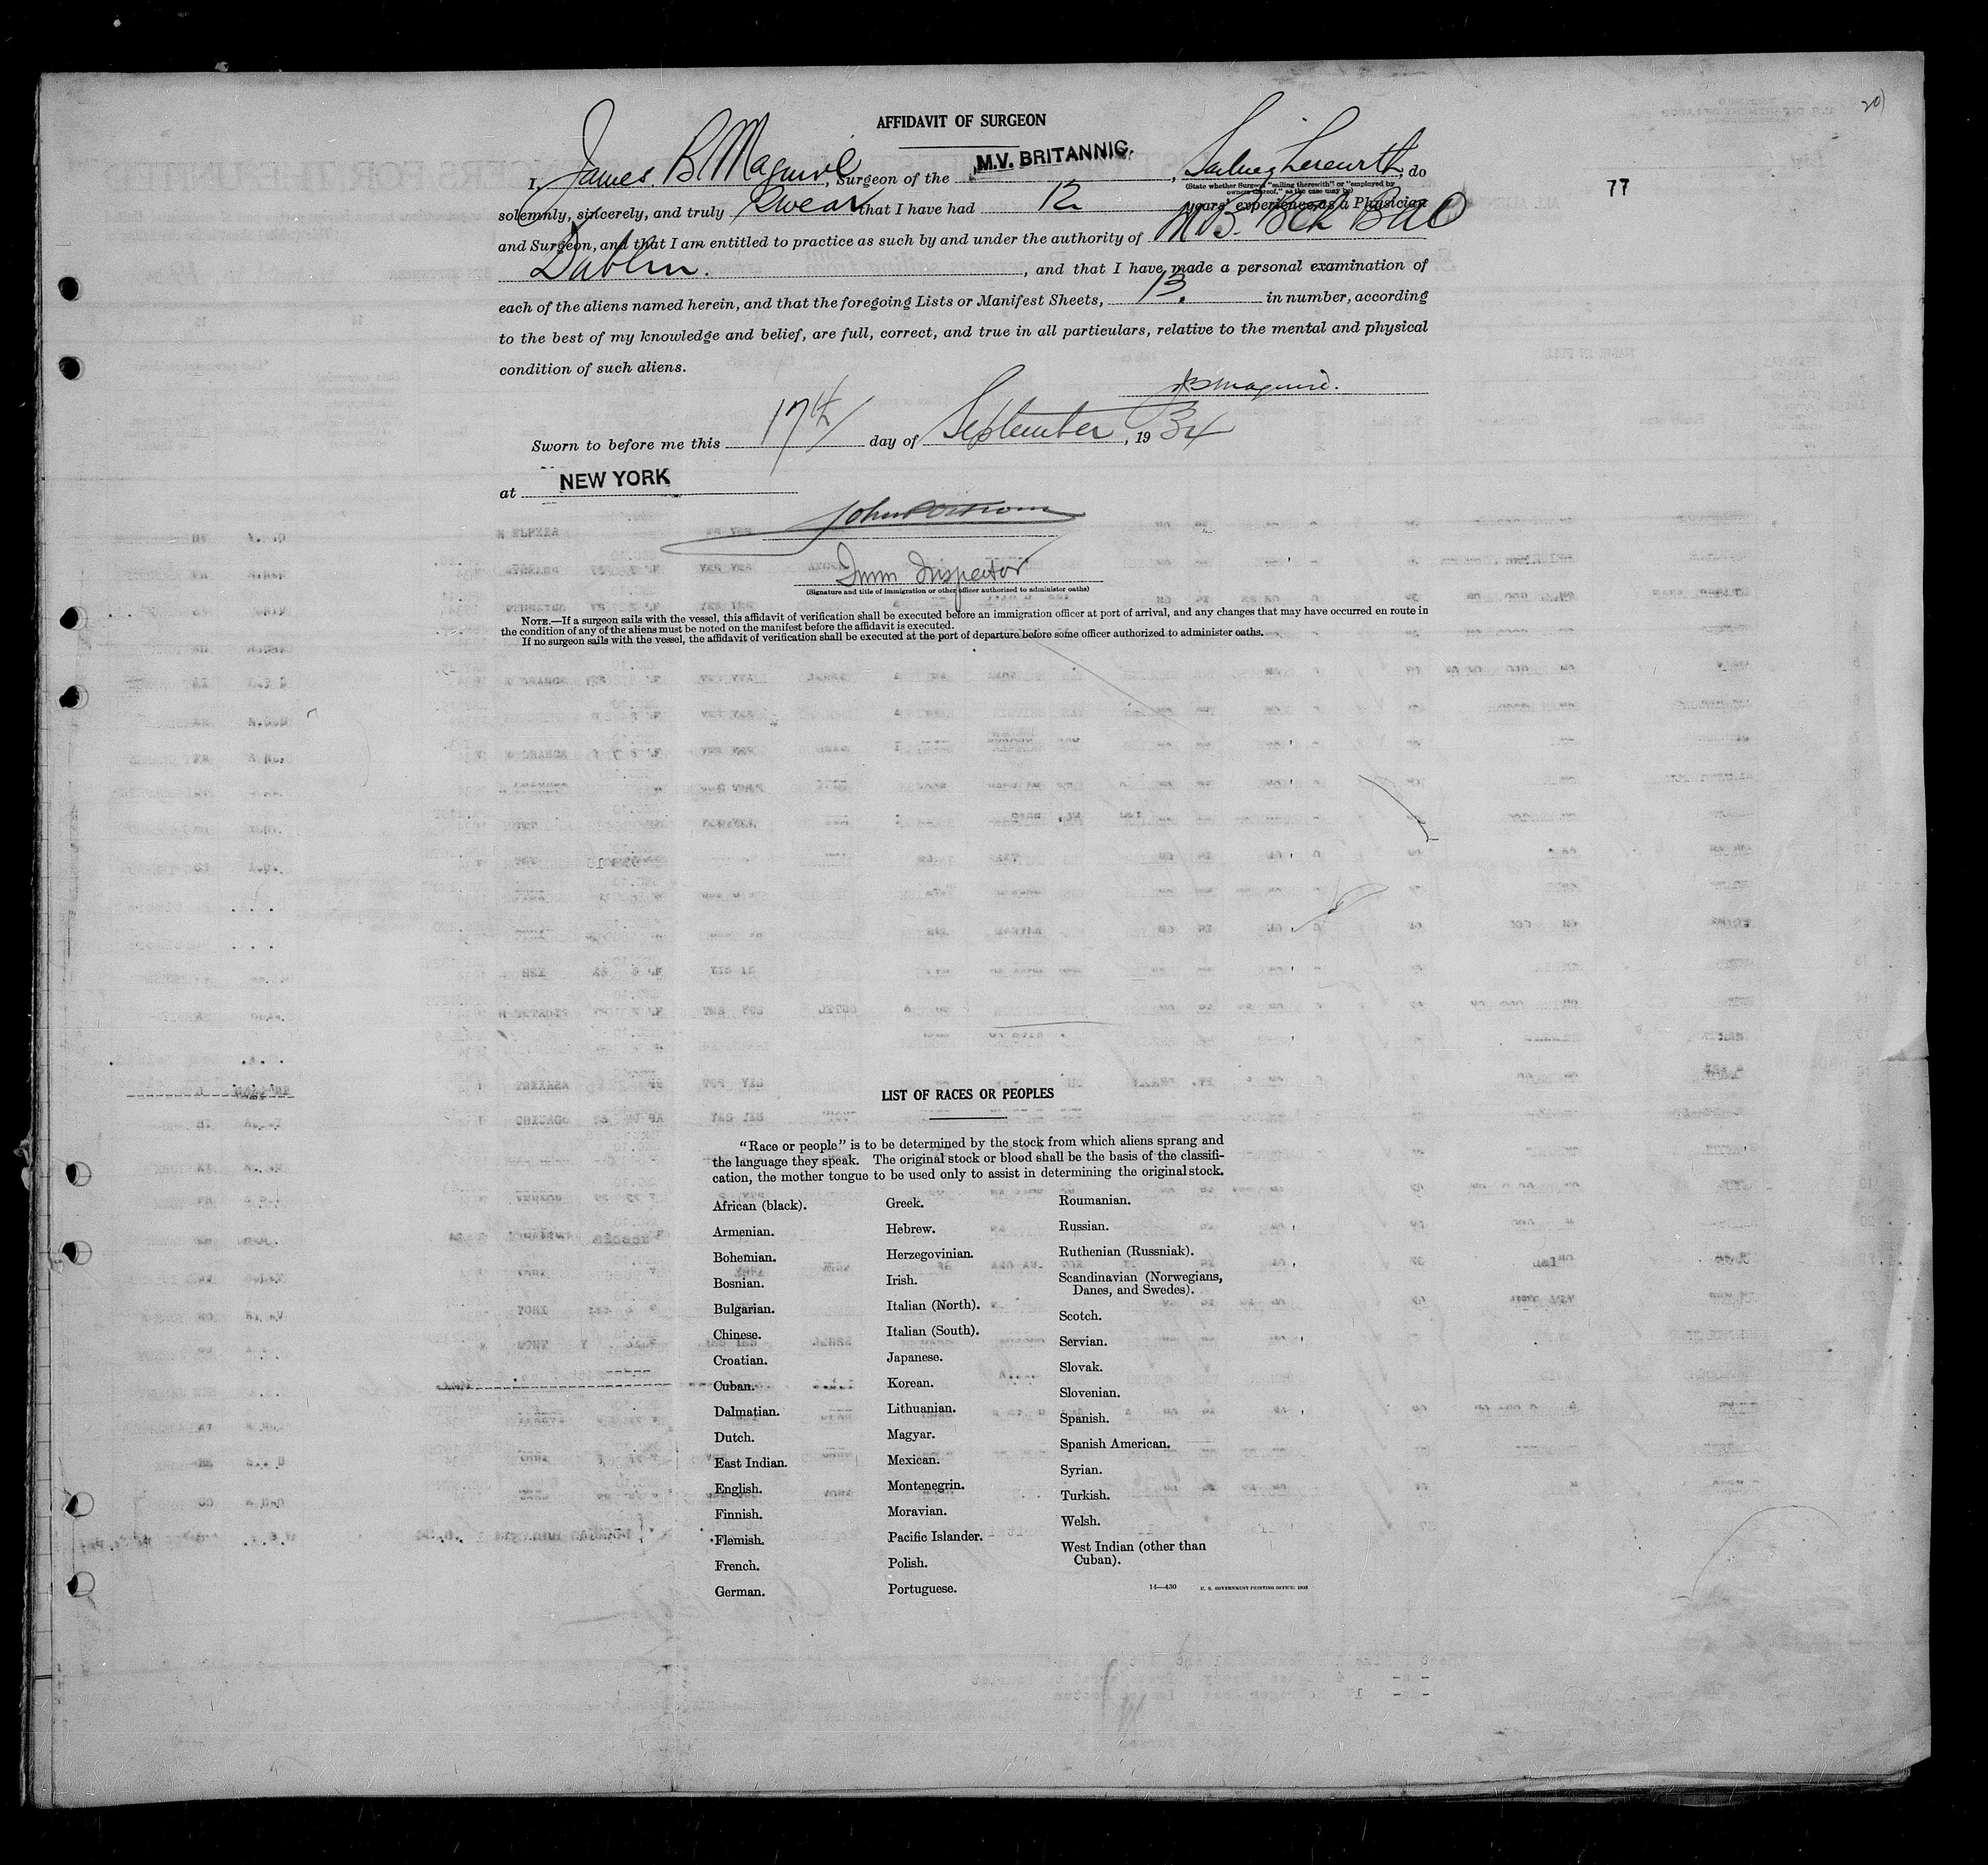 20
AFFIDAVIT OF SURGEON
I, James. B. Maguire, Surgeon of the M.V. BRITANNIC, Sailing therewith, do
(State whether Surgeon "sailing therewith" or "employed by
owners thereof," as the case may be)
77
solemnly, sincerely, and truly Swear that I have had 12 years' experience as a Physician
and Surgeon, and that I am entitled to practice as such by and under the authority of M B. BCh BAO
Dublin. , and that I have made a personal examination of
each of the aliens named herein, and that the foregoing Lists or Manifest Sheets, 13. in number, according
to the best of my knowledge and belief, are full, correct, and true in all particulars, relative to the mental and physical
condition of such aliens.
JBMaguire.
Sworn to before me this 17th day of September, 1934
at NEW YORK
Imm Inspector
(Signature and title of immigration or other officer authorized to administer oaths)
NOTE.—If a surgeon sails with the vessel, this affidavit of verification shall be executed before an immigration officer at port of arrival, and any changes that may have occurred en route in
the condition of any of the aliens must be noted on the manifest before the affidavit is executed.
If no surgeon sails with the vessel, the affidavit of verification shall be executed at the port of departure before some officer authorized to administer oaths.
LIST OF RACES OR PEOPLES
"Race or people" is to be determined by the stock from which aliens sprang and
the language they speak. The original stock or blood shall be the basis of the classifi-
cation, the mother tongue to be used only to assist in determining the original stock.
African (black).
Armenian.
Bohemian.
Bosnian.
Bulgarian.
Chinese.
Croatian.
Cuban.
Dalmatian.
Dutch.
East Indian.
English.
Finnish.
Flemish.
French.
German.
Greek.
Hebrew.
Herzegovinian.
Irish.
Italian (North).
Italian (South).
Japanese.
Korean.
Lithuanian.
Magyar.
Mexican.
Montenegrin.
Moravian.
Pacific Islander.
Polish.
Portuguese.
Roumanian.
Russian.
Ruthenian (Russniak).
Scandinavian (Norwegians,
Danes, and Swedes).
Scotch.
Servian.
Slovak.
Slovenian.
Spanish.
Spanish American.
Syrian.
Turkish.
Welsh.
West Indian (other than
Cuban).
14—430 U. S. GOVERNMENT PRINTING OFFICE: